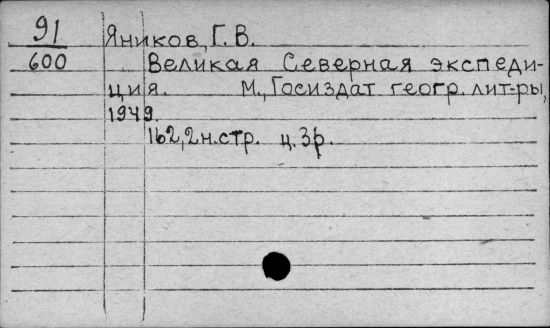 91
600
Яников, Г. В.
Великая Северная экспеди-
ция. М., Госиздат геогр. лит-ры,
1949.
162, 2 н. стр. ц. 3 р.